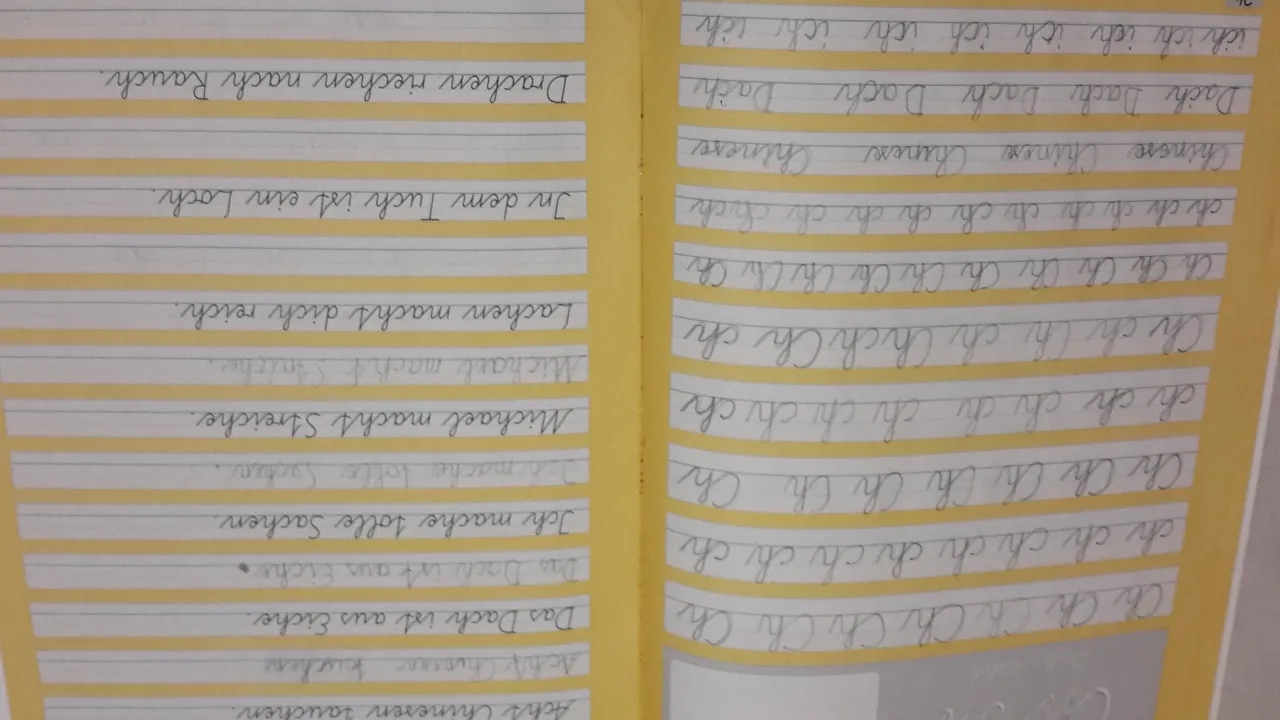 Ch Ch Ch Ch Ch Ch Ch Ch
ch ch ch ch ch ch ch ch ch
Ch Ch Ch Ch Ch Ch Ch Ch
ch ch ch ch ch ch ch ch ch
Ch ch Ch ch Ch ch Ch ch Ch ch
Ch Ch Ch Ch Ch Ch Ch Ch Ch Ch Ch
ch ch ch ch ch ch ch ch ch ch ch
Chinese Chinese Chinese Chinese
Dach Dach Dach Dach Dach Dach
ich ich ich ich ich ich ich ich ich
Acht Chinesen tauchen.
Acht Chinesen tauchen
Das Dach ist aus Eiche.
Das Dach ist aus Eiche.
Ich mache tolle Sachen.
Ich mache tolle Sachen.
Michael macht Streiche.
Michael macht Streiche.
Lachen macht dich reich.
In dem Tuch ist ein Loch.
Drachen riechen nach Rauch.